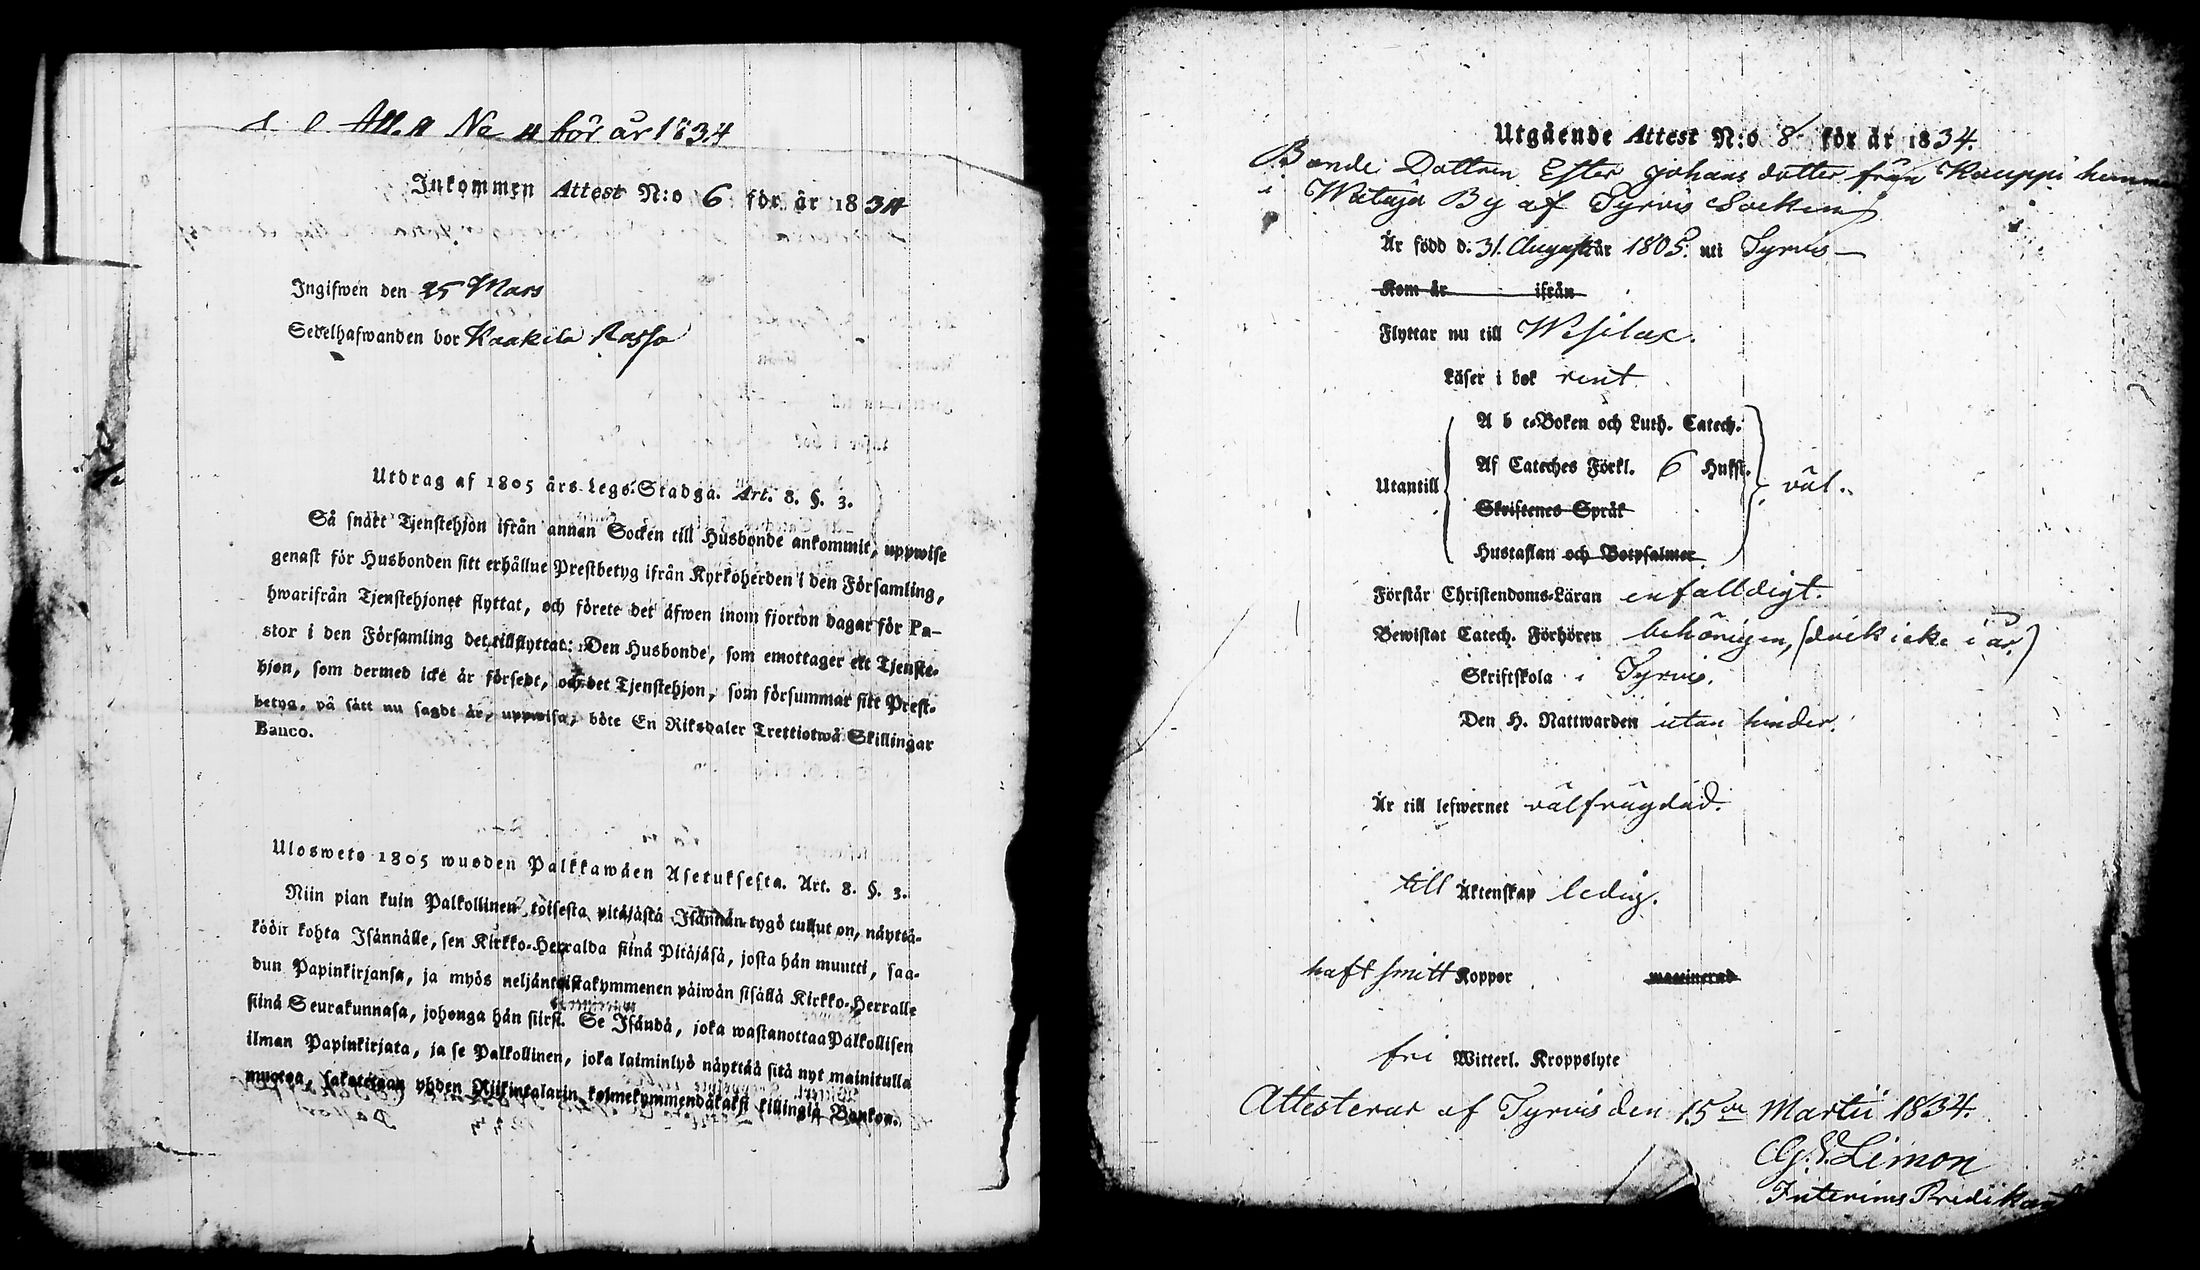 Att. N:o 4 för år 1834
Inkommen Attest N:o 6 för år 1834
Ingifwen den 25 Mars
Sedelhafwanden bor Kaakila Rassa
Utdrag af 1805 års Lego-Stadga. Art. 8. §. 3.
Så snart Tjenstehjon ifrån annan Socken till Husbonde ankommit, uppwise
genast för Husbonden sitt erhållne Prestbetyg ifrån Kyrkoherden i den Församling,
hwarifrån Tjenstehjonet flyttat, och förete det äfwen inom fjorton dagar för Pa-
stor i den Församling det tillflyttat: Den Husbonde, som emottager ett Tjenste-
hjon, som dermed icke är försedt, och det Tjenstehjon, som försummar sitt Prest-
betyg, på sätt nu sagdt är, uppwisa, böte En Riksdaler Trettiotwå Skillingar
Banco.
Ulosweto 1805 wuoden Palkkawäen Asetuksesta. Art. 8. §. 3.
Niin pian kuin Palkollinen toisesta pitäjästä Isännän tygö tullut on, näyttä-
köön kohta Isännälle, sen Kirkko-Herralda siinä Pitäjäsä, josta hän muutti, saa-
dun Papinkirjansa, ja myös neljäntoistakymmenen päiwän sisällä Kirkko-Herralle
siinä Seurakunnasa, johonga hän siirsi. Se Isändä, joka wastanottaa Palkollisen
ilman Papinkirjata, ja se Palkollinen, joka laiminlyö näyttää sitä nyt mainitulla
muotoa, sakotetaan yhden Riikintalarin kolmekymmendäkaksi killingiä Bankoa.
Utgående Attest N:o 8 för år 1834.
Bonde Dottren Ester Johans dotter från Kauppi hemman
i Wataja By af Tyrvis Socken
Är född d. 31. August år 1805. uti Tyrvis
Kom år ifrån
Flyttar nu till Wesilax.
Läser i bok rent
A b c-Boken och Luth. Catech.
Af Cateches Förkl. 6 Hufst.
Utantill väl.
Skriftenes Språk
Hustaflan och Botpsalmer
Förstår Christendoms-Läran enfalldigt.
Bewistat Catech. Förhören behörigen, (dock icke i år.)
Skriftskola i Tyrvis.
Den H. Nattwarden utan hinder.
Är till lefwernet välfrägdad.
till Äktenskap ledig.
haft smitt Koppor waccinerad
fri Witterl. Kroppslyte
Attesterar af Tyrvis den 15de Martii 1834.
G. E. Limon
Interims Predikant